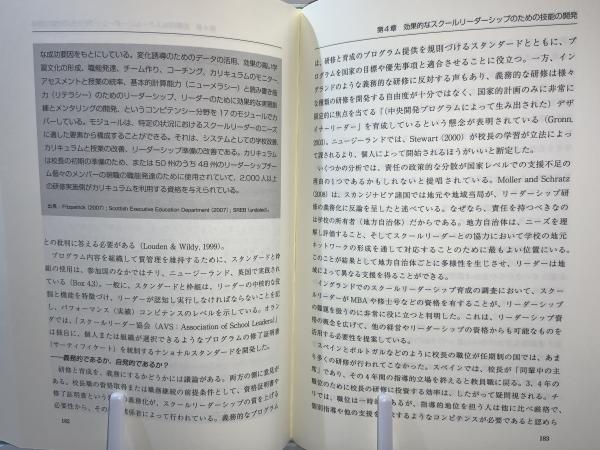 な成功要因をもとにしている。変化誘導のためのデータの活用、効果の高い学
習文化の形成、職能発達、チーム作り、コーチング、カリキュラムのモニター、
アセスメントと授業の統率、基本的計算能力（ニューメラシー）と読み書き能
力（リテラシー）のためのリーダーシップ、リーダーのために効果的な実習訓
練とメンタリングの開発、というコンピテンシー分野を17のモジュールでカ
バーしている。モジュールは、特定の状況におけるスクールリーダーのニーズ
に適した要素から構成することができる。それは、システムとしての学校改善、
カリキュラムと授業の改善、リーダーシップ準備の改善である。カリキュラム
は校長の初期の準備のため、または50州のうち48州のリーダーシップチー
ム個々のメンバーの現職の職能発達のために使用されていて、2,000人以上
の研修実施側がカリキュラムを利用する資格を与えられている。
出典：Fitzpatrick (2007)；Scottish Executive Education Department (2007)；SREB (undated).
との批判に答える必要がある（Louden & Wildy, 1999）。
プログラム内容を組織して質管理を維持するために、スタンダードと枠
組の使用は、参加国のなかではチリ、ニュージーランド、英国で実践され
ている（Box 4.3）。一般に、スタンダードと枠組は、リーダーの中核的な役
割と機能を特徴づけ、リーダーが認知し実行しなければならないことを記
し、パフォーマンス（実績）コンピテンスのレベルを示している。オラン
ダでは、「スクールリーダー協会（AVS：Association of School Leaders）」
は独自に、個人または組織が選択できるようなプログラムの修了証明書
（サーティフィケート）を統制するナショナルスタンダードを開発した。
義務的であるか、自発的であるか？
研修と育成を、義務にするかどうかには議論がある。両方の側に意見が
ある。校長職の資格取得または職務継続の前提条件として、資格証明書や
修了証明書という
の義務化が、スクールリーダーシップの質を上げる
必要性から、その
関係者によって行われている。義務的なプログラム
182
第4章　効果的なスクールリーダーシップのための技能の開発
は、研修と育成のプログラム提供を規則づけるスタンダードとともに、プ
ログラムを国家の目標や優先事項と適合させることに役立つ。一方、イン
グランドのような義務的な研修に反対する声もあり、義務的な研修は様々
な種類の研修を開発する自由度が十分ではなく、国家的計画のみに非常に
限定的に焦点を当てる「（中央開発プログラムによって生み出された）デザ
イナーリーダー」を育成しているという懸念が表明されている（Gronn,
2003）。ニュージーランドでは、Stewart（2000）が校長の学習が立法によっ
て課されるより、個人によって開始されるほうがいいと断定した。
いくつかの分析では、責任の政策的な分散が国家レベルでの支援不足の
理由の1つであるかもしれないと提唱されている。Moller and Schratz
（2008）は、スカンジナビア諸国では地元や地域当局が、リーダーシップ研
修の義務化に反論を呈したと述べている。なぜなら、責任を持つべきなの
は学校の所有者（地方自治体）だからである。地方自治体は、ニーズを理
解し評価すること、そしてスクールリーダーとの協力において学校の地元
ネットワークの形成を通して対応することのために最もよい位置にいる。
このことが結果として地方自治体ごとに多様性を生じさせ、リーダーは地
域によって異なる支援を得ることができる。
イングランドでのスクールリーダーシップ育成の調査において、スクー
ルリーダーがMBAや修士号などの資格を有することが、リーダーシップ
の課題を扱うのに非常に役に立つと判明した。これは、リーダーシップ資
格の概念を広げて、他の経営やリーダーシップの資格からも可能なものを
活用する必要性を提案している。
スペインやポルトガルなどのように校長の職位が任期制の国では、あま
り多くの研修が行われてこなかった。スペインでは、校長が「同輩中の主
席」であり、その4年間の指導的立場を終えると教員職に戻る。3、4年の
職位のために校長の研修に投資する効率は、したがって疑問視される。チ
リでは、職位は一時
あるが、指導的地位を担う人は他に比べ厳格で、
個別指導や他の支援を
するようなコンピテンスが必要であると認めら
183